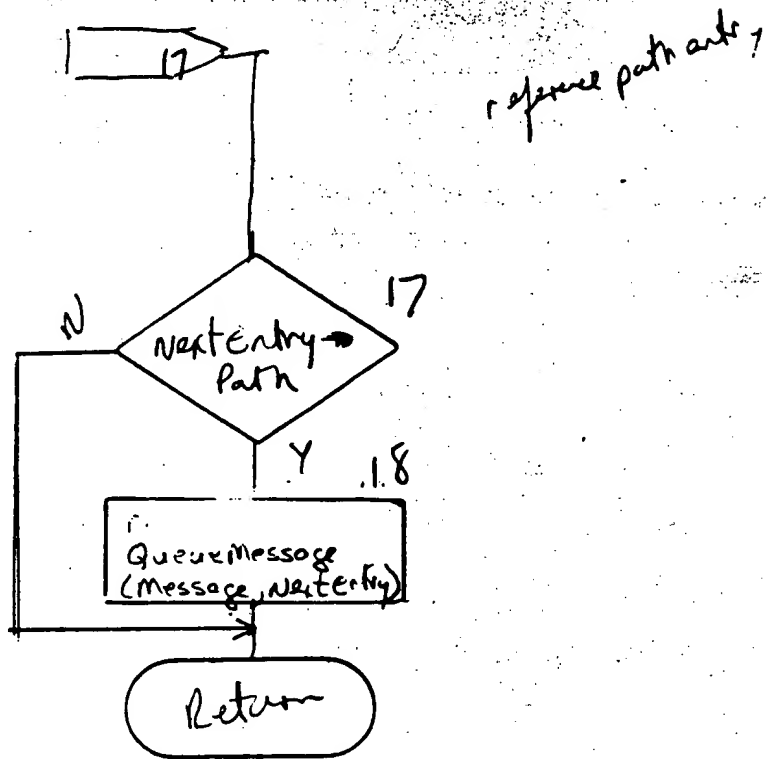 17
reference path
17
N
NextEntry→
Path
Y
18
QueueMessage
(Message, NextEntry)
Return